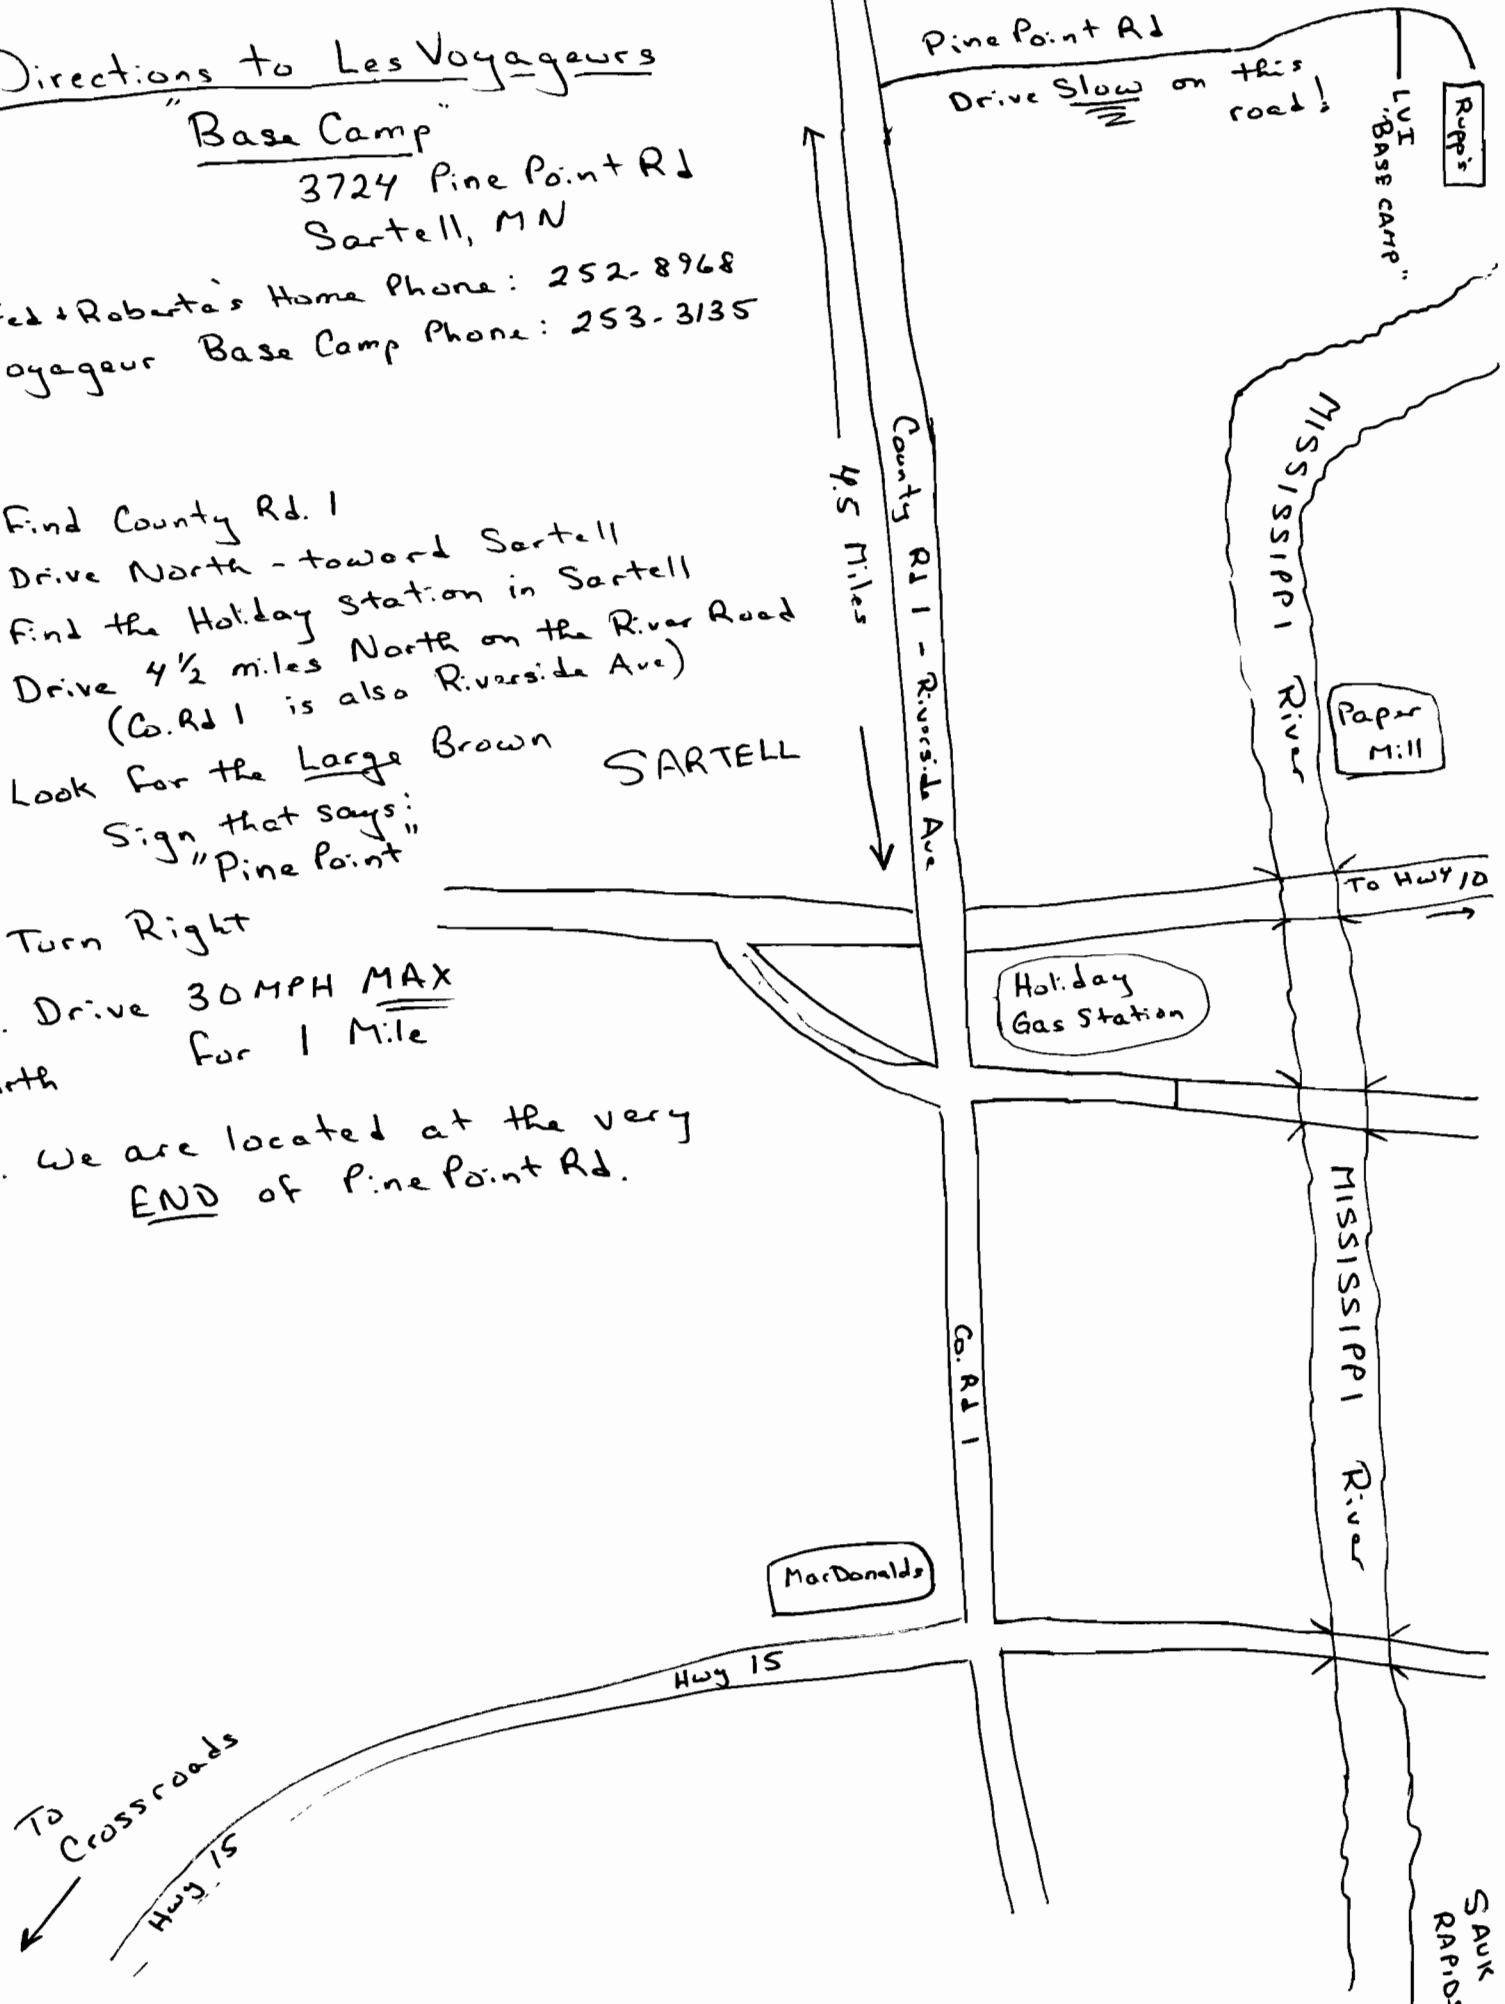 Directions to Les Voyageurs
"Base Camp"
3724 Pine Point Rd
Sartell, MN
ed + Roberta's Home Phone: 252-8968
oyageur Base Camp Phone: 253-3135
Find County Rd. 1
Drive North - toward Sartell
Find the Holiday Station in Sartell
Drive 4 ½ miles North on the River Road
(Co. Rd 1 is also Riverside Ave)
Look for the Large Brown
Sign that says:
"Pine Point"
Turn Right
. Drive 30 MPH MAX
for 1 Mile
rth
. We are located at the very
END of Pine Point Rd.
Pine Point Rd
Drive Slow on this
road!
LVI
"BASE CAMP"
Rupp's
4.5 Miles
County Rd 1 - Riverside Ave
SARTELL
MISSISSIPPI River
Paper
Mill
To HWY 10
Holiday
Gas Station
MISSISSIPPI River
Co. Rd 1
MacDonalds
Hwy 15
To
Crossroads
Hwy 15
SAUK
RAPIDS